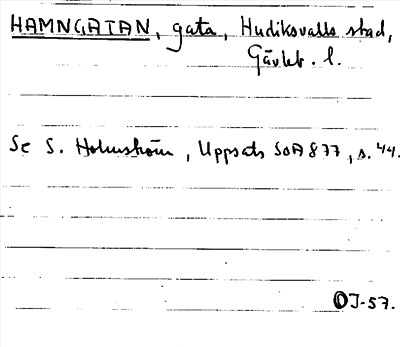 HAMNGATAN, gata, Hudiksvalls stad,
Gävleb. l.
Se S. Holmström, Uppsats SOA 877, s. 44.
OJ-57.